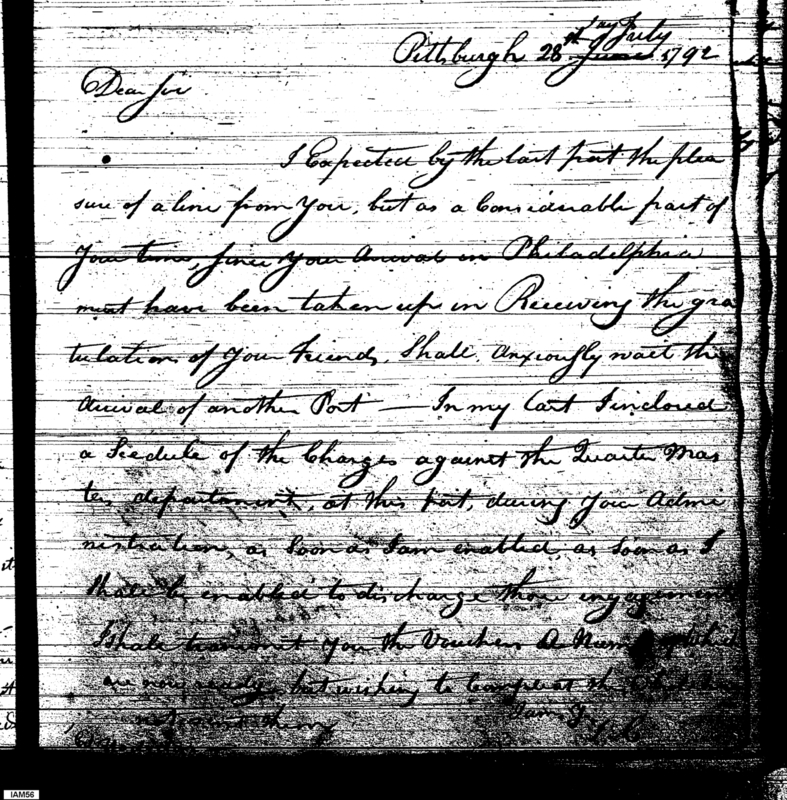 Pittsburgh 28 June July 1792
Dear Sir
I Expected by the last post the plea
sure of a line from You, but as a Considerable part of
Your time, since Your Arival in Philadelphia
must have been taken up in Receiving the gra
tulations of Your Friends, Shall Anxiously wait the
Arival of another Post — In my last I inclosed
a Scedule of the Charges against the Quarter Mas
ters department, at this post, during Your Admi
nistration, as soon as I am enabled, as soon as I
shall be enabled to discharge those engagements
I shall transmit you the Vouchers A Number of which
are now ready, but wishing to Compleat the
not sent them
I am Sr
IAM56